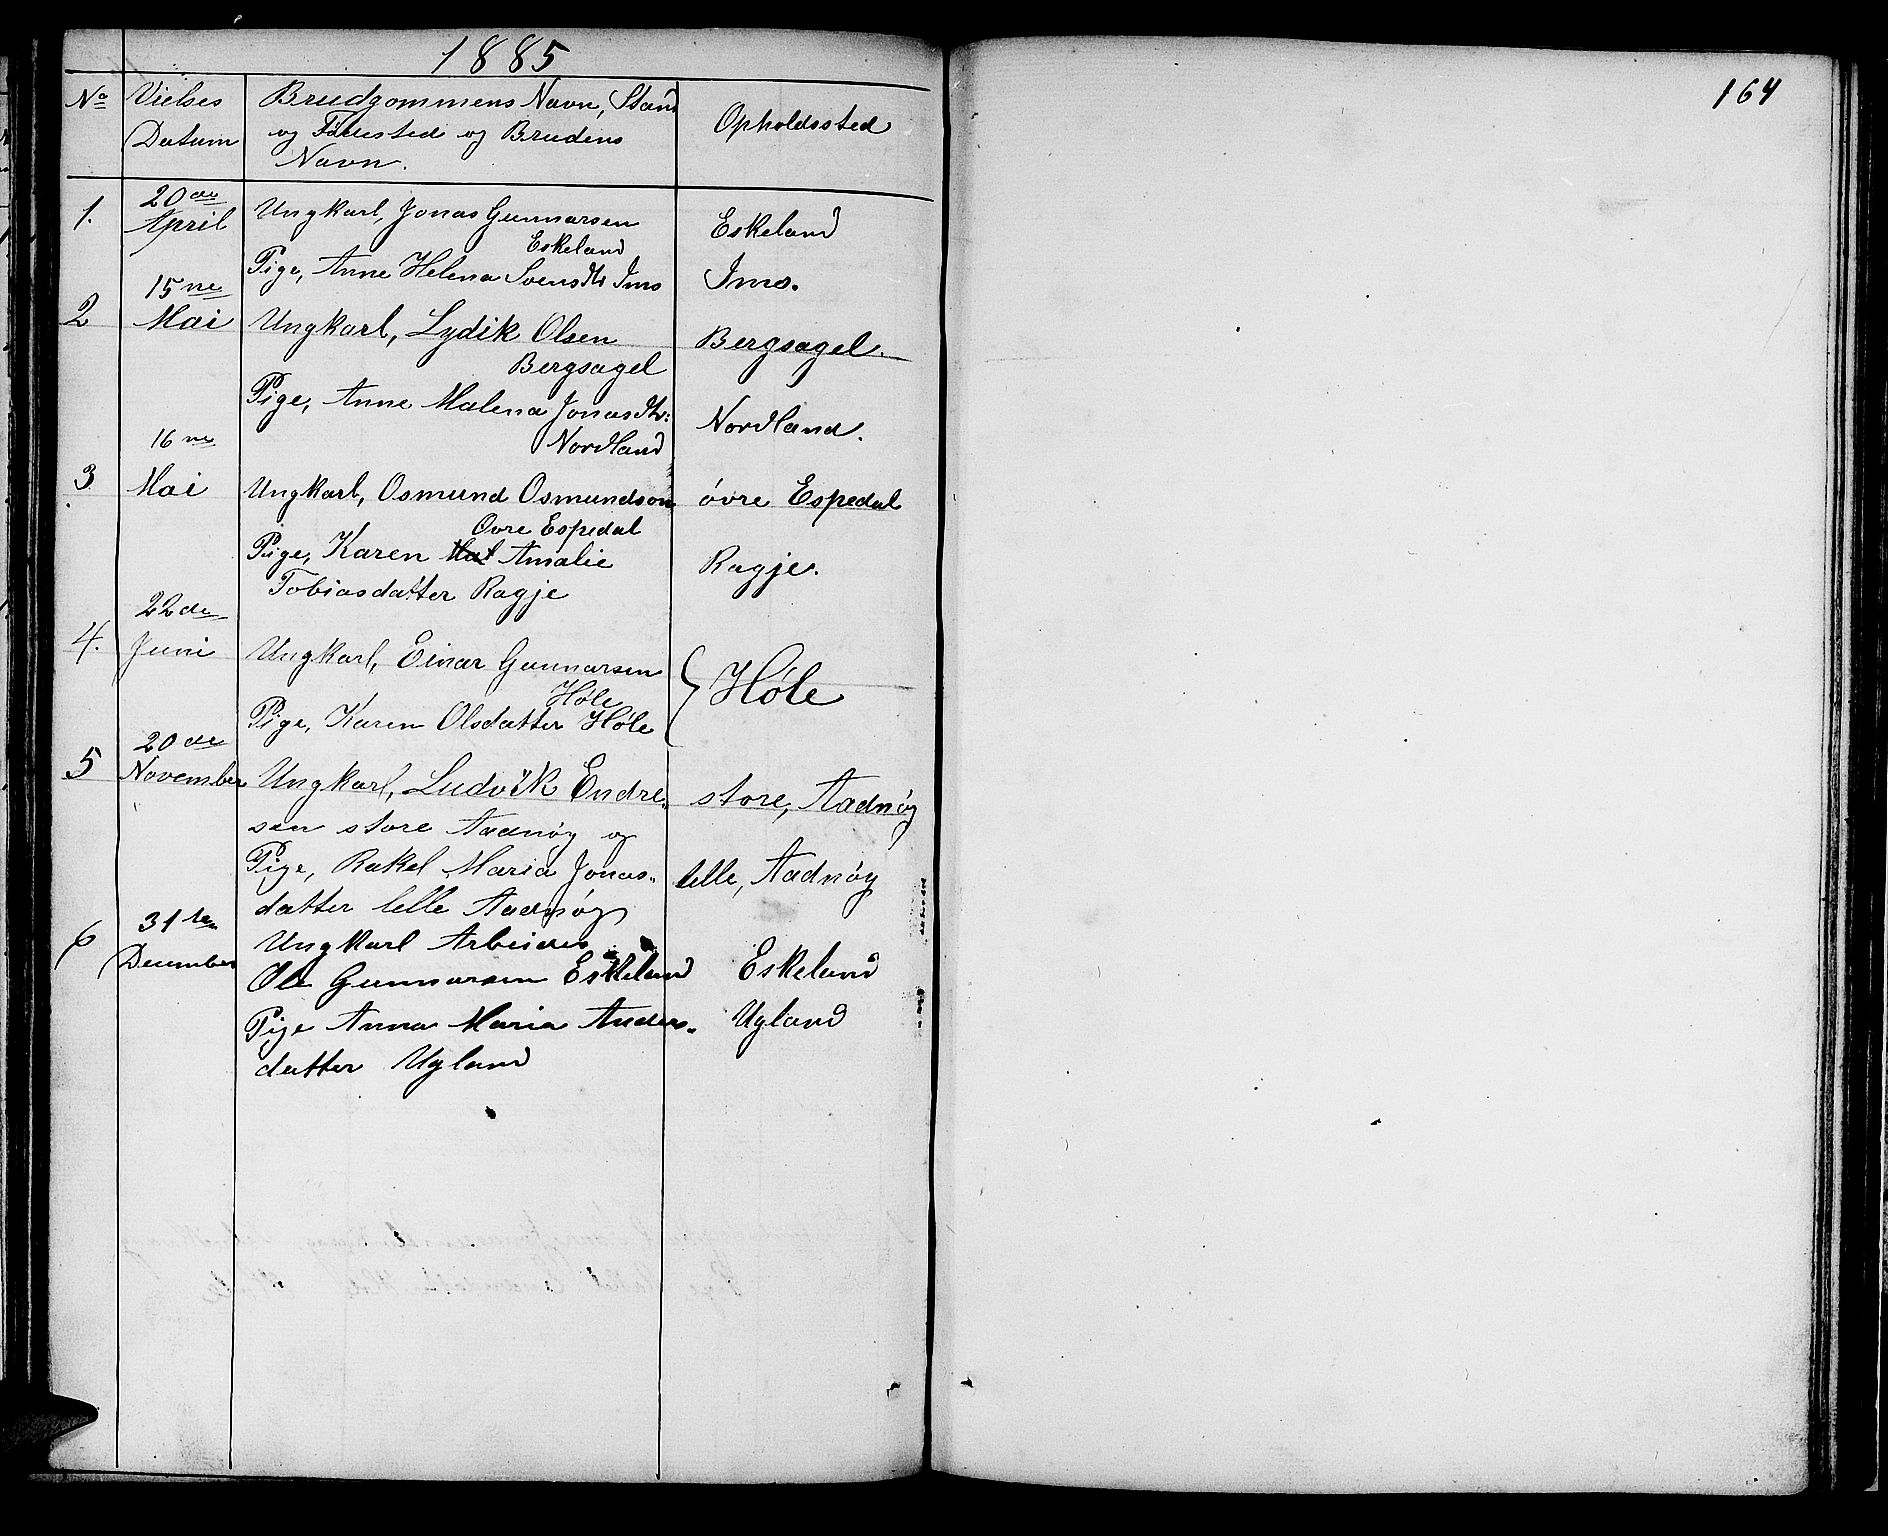 1885
No Vielses Datum Brudgommens Navn, Stand og Fødested og Brudens Navn. Opholdssted
1. 20de April Ungkarl, Jonas Gunnarsen Eskeland
Eskeland
Pige, Anne Helena Svensdtr Ims Ims.
2 15ne Mai Ungkarl, Lydik Olsen Bergsagel.
Bergsagel
Pige, Anne Malena Jonasdtr: Nordland.
Nordland
3. 16ne Mai Ungkarl, Osmund Osmundson óvre Espedal
Ovre Espedal
Pige, Karen Mal Amalie Ragje.
Tobiasdatter Ragje
4. 22de Juni Ungkarl, Einar Gunnarsen Hóle
Hóle
Pige, Karen Olsdatter Hóle
5 20de November Ungkarl, Ludvik Endre- store, Aadnóy
sen store Aadnóy og
Pige, Rakel Maria Jonas- lelle, Aadnóy
datter lelle Aadnóy
6 31te December Ungkarl Arbeider
Ole Gunnarsen Eskeland Eskeland
Pige Anna Maria Anders- Ugland
datter Ugland
164